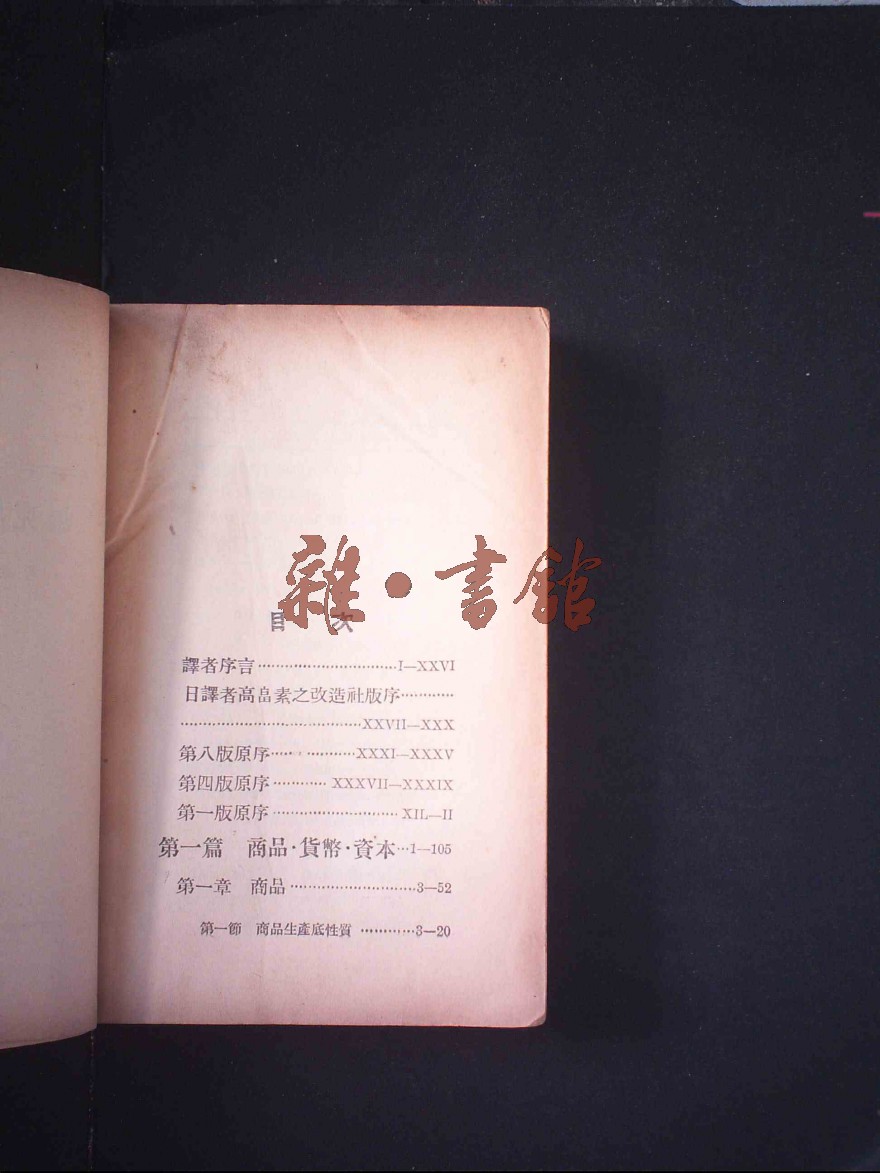 雜·書館
目 次
譯者序言································I—XXVI
日譯者高畠素之改造社版序············
········································XXVII—XXX
第八版原序···················XXXI—XXXV
第四版原序············XXXVII—XXXIX
第一版原序····························XIL—II
第一篇 商品·貨幣·資本···1—105
第一章 商品····························3—52
第一節 商品生產底性質············3—20